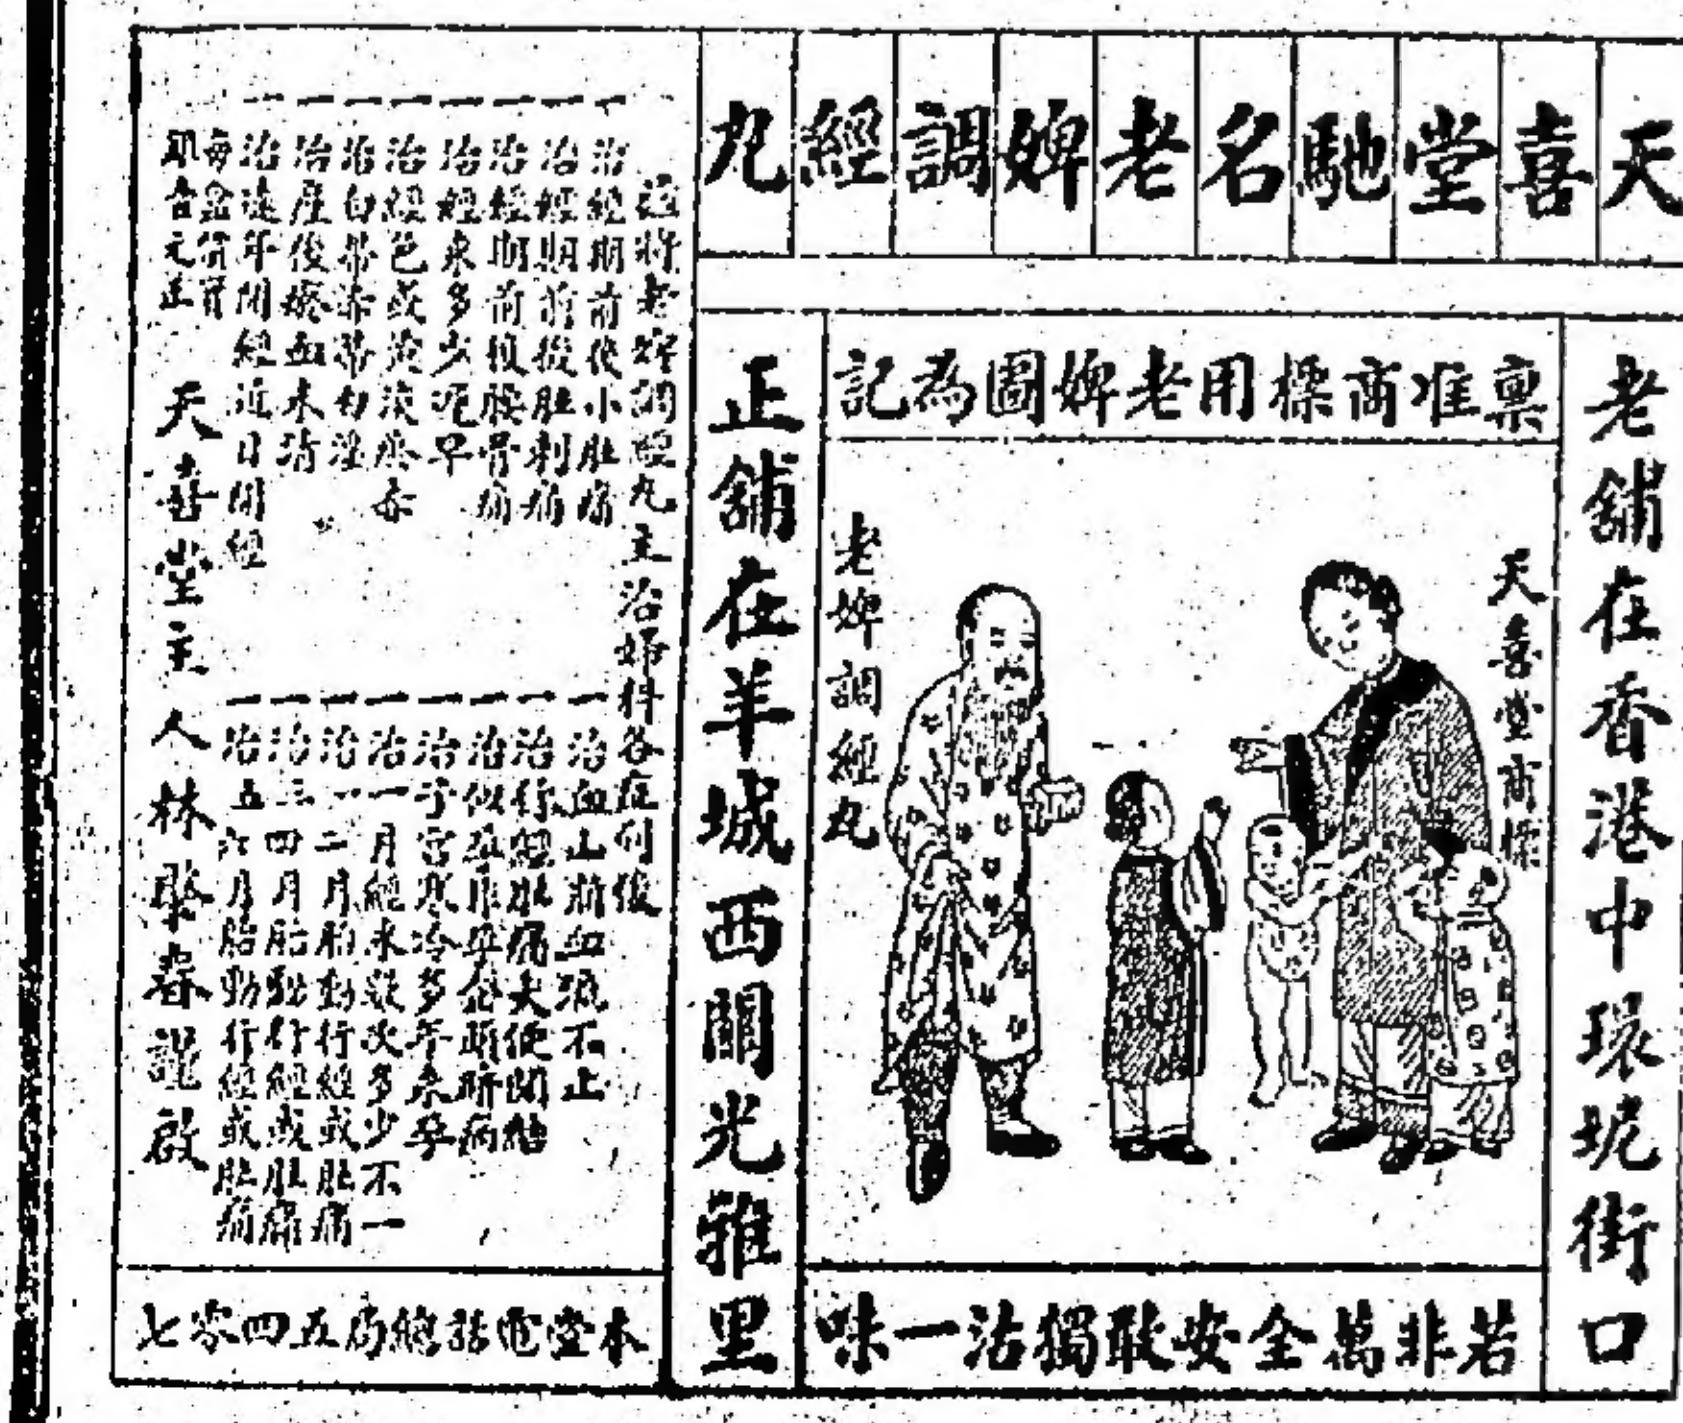 天喜堂馳名老婢調經丸
老舖在香港中環坭街口
稟准商標用老婢圖為記
天喜堂商標
老婢調經丸
若非萬全安敢獨沽一味
正舖在羊城西關光雅里
茲將老婢調經丸主治婦科各症列後
一治經期前後小肚痛
一治經期前後肚刺痛
一治經期前後腰骨痛
一治經來多少遲早
一治經色或淡
一治白帶赤帶白淫
一治產後瘀血未清
一治遠年閉經近日閉經
一治血山崩血流不止
一治行經肚痛大便閉結
一治似孕非孕
一治子宮寒冷多年未孕
一治一月經來幾次多少不一
一治一二月胎動行經或肚痛
一治三四月胎動行經或肚痛
一治五六月胎動行經或肚痛
每盒
天喜堂主人林謹啟
本堂電話總局五四零七